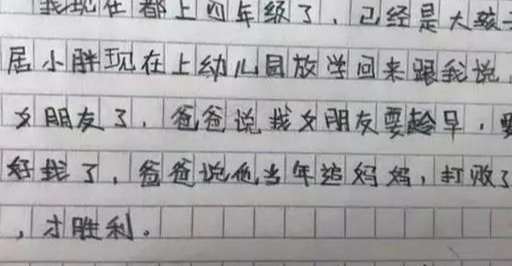 我现在都上四年级了，已经是大孩
居小胖现在上幼儿园放学回来跟我说
女朋友了，爸爸说找女朋友要趁早，要
好找了，爸爸说他当年追妈妈，打败了
，才胜利。